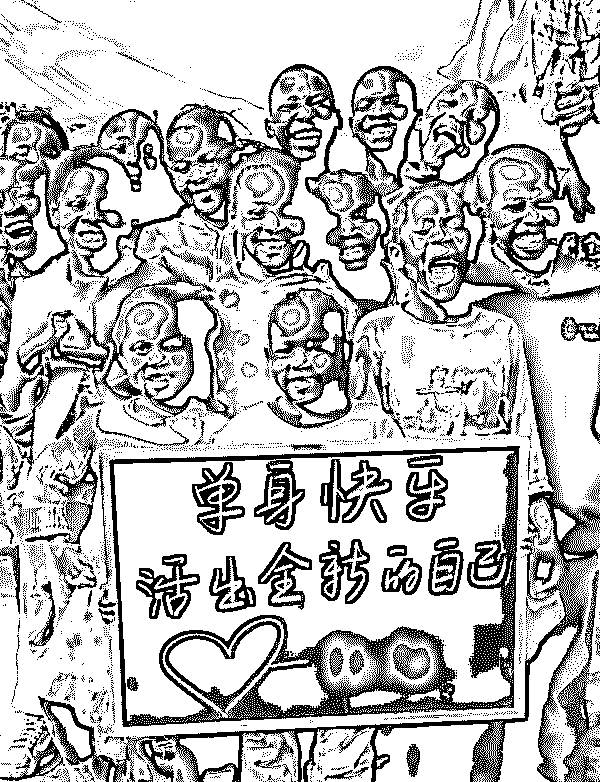 单身快乐
活出全新的自己